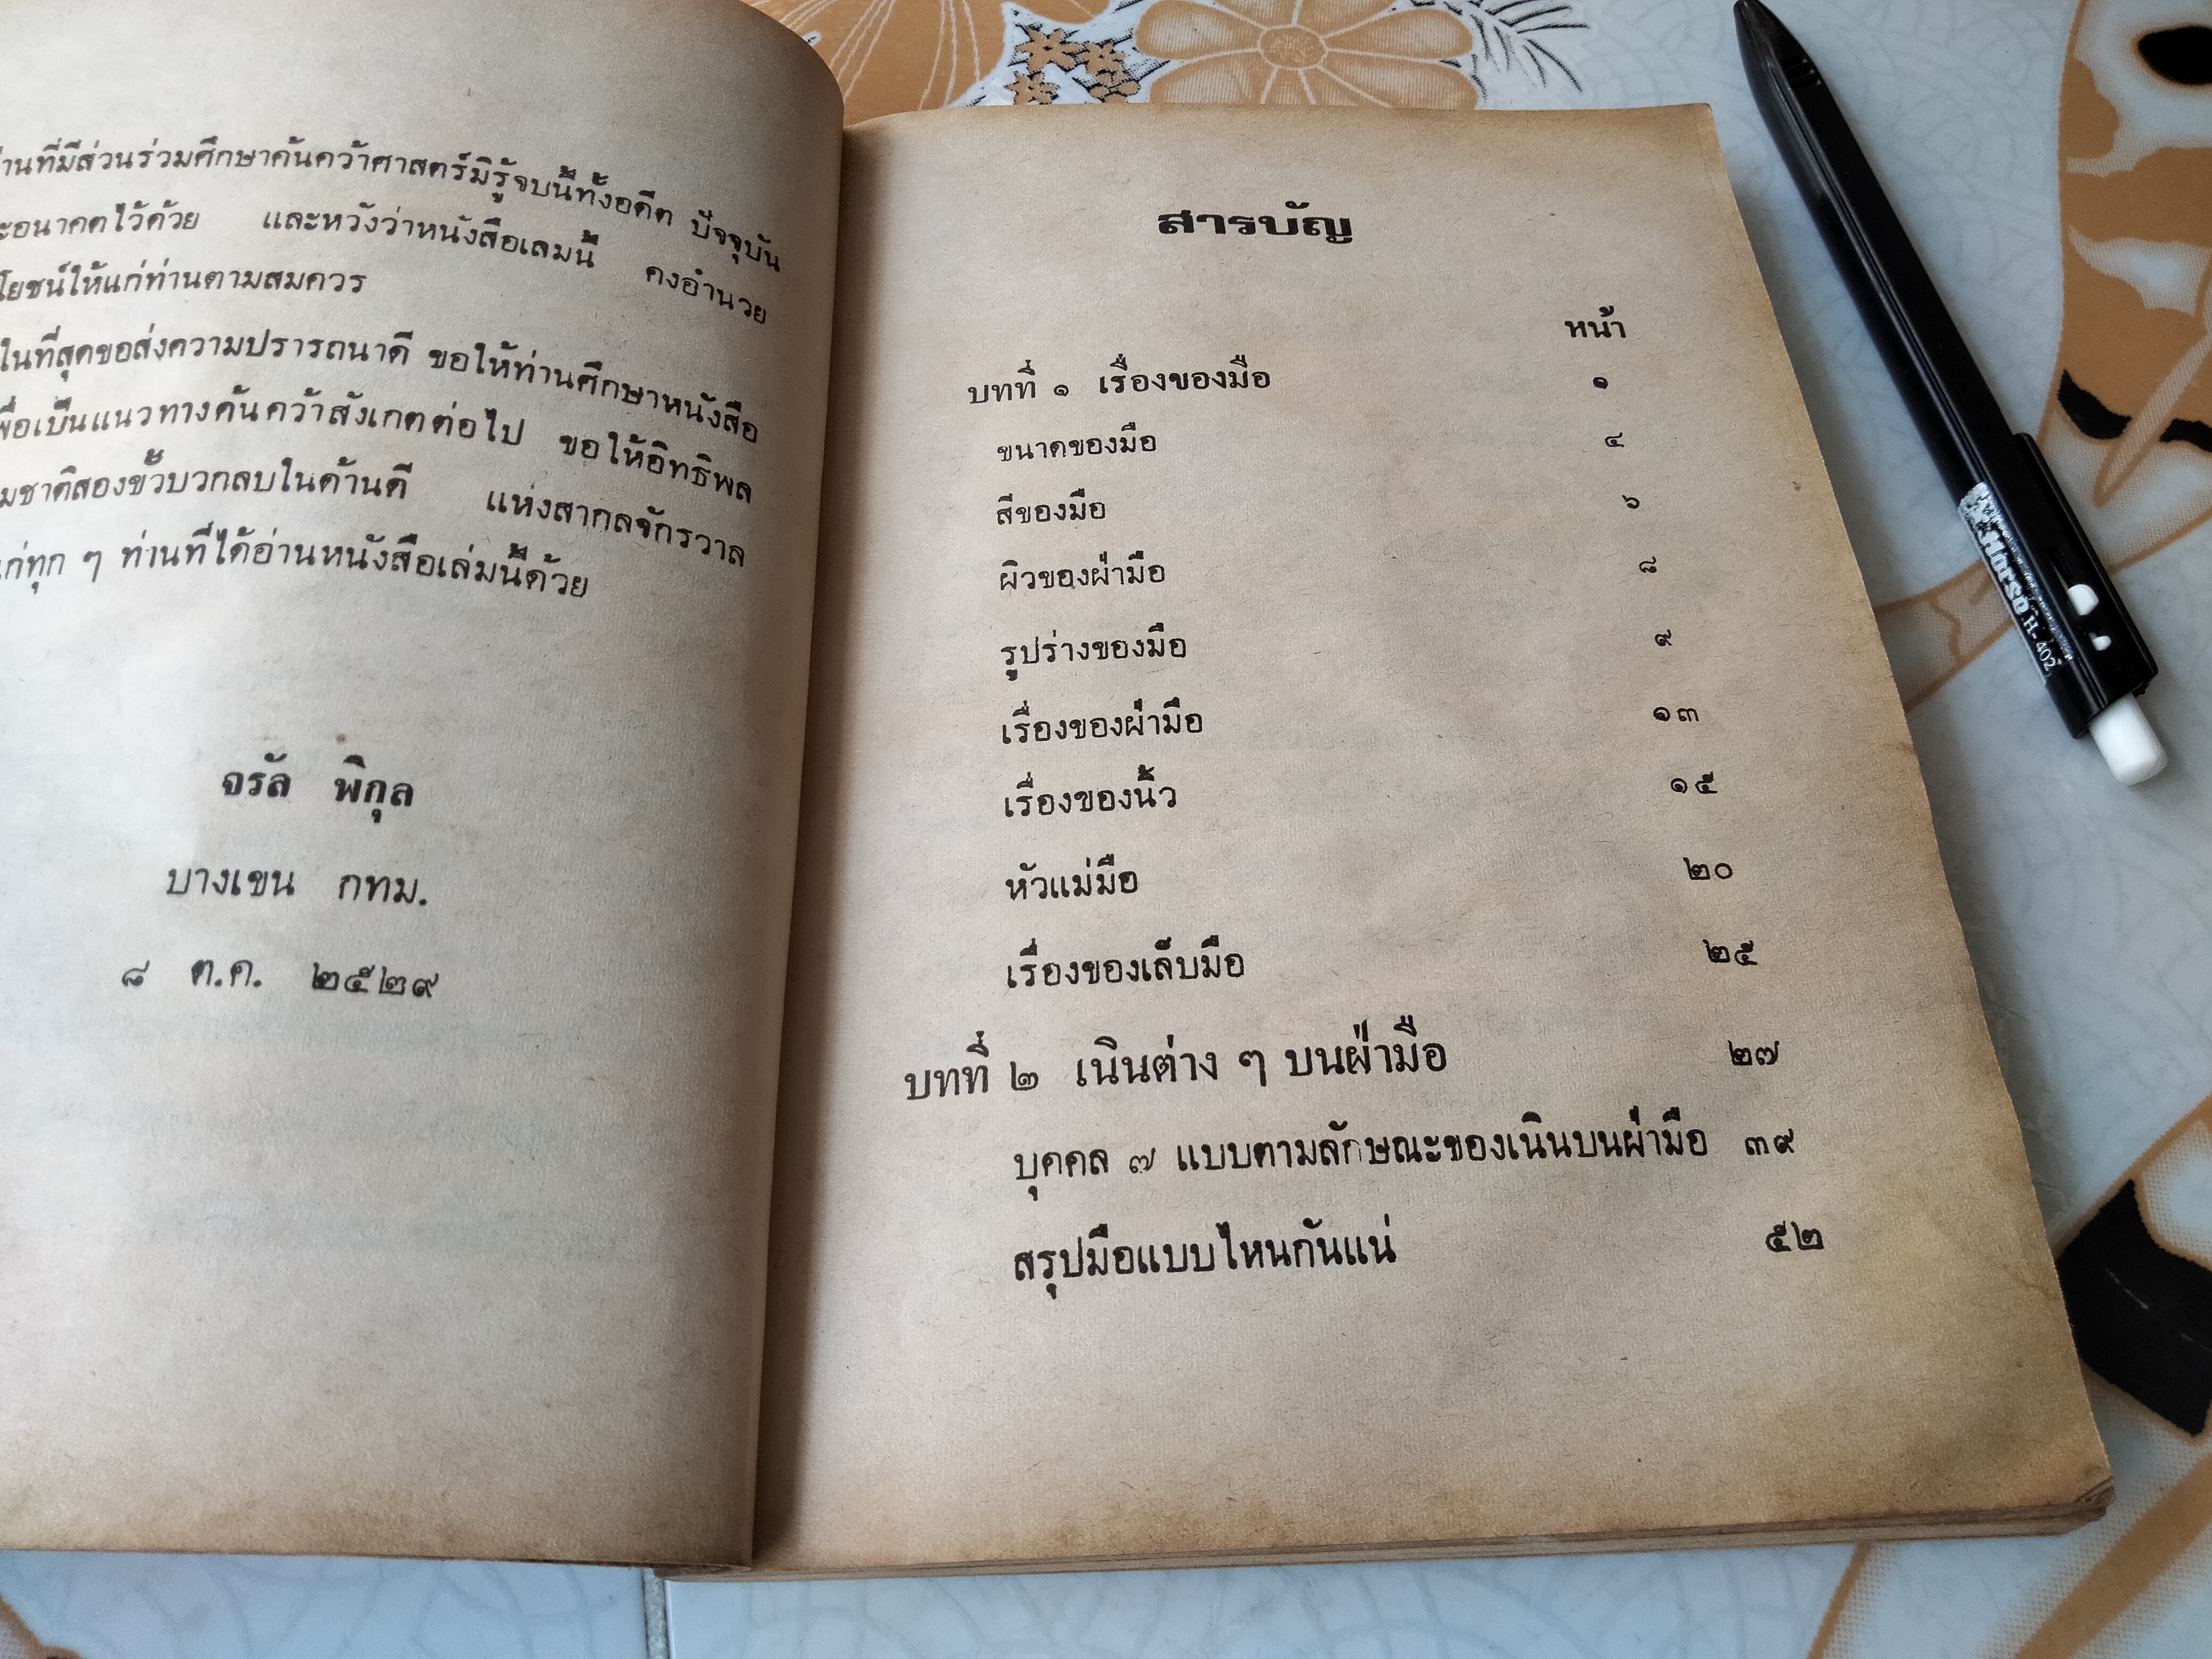 ที่มีส่วนร่วมศึกษาค้นคว้าศาสตร์มิรู้จบนี้ทั้งอดีต ปัจจุบัน
อนาคตไว้ด้วย และหวังว่าหนังสือเลมนี้ คงอำนวย
โยชน์ให้แก่ท่านตามสมควร
ในที่สุดขอส่งความปรารถนาดี ขอให้ท่านศึกษาหนังสือ
เพื่อเป็นแนวทางค้นคว้าสังเกตต่อไป ขอให้อิทธิพล
มชาติสองขั้วบวกลบในด้านดี แห่งสากลจักรวาล
แก่ทุก ๆ ท่านที่ได้อ่านหนังสือเล่มนี้ด้วย
จรัล พิกุล
บางเขน กทม.
๘ ต.ค. ๒๕๒๙
สารบัญ
หน้า
บทที่ ๑ เรื่องของมือ ๑
ขนาดของมือ ๔
สีของมือ ๖
ผิวของฝ่ามือ ๘
รูปร่างของมือ ๙
เรื่องของฝ่ามือ ๑๓
เรื่องของนิ้ว ๑๕
หัวแม่มือ ๒๐
เรื่องของเล็บมือ ๒๕
บทที่ ๒ เนินต่าง ๆ บนฝ่ามือ ๒๗
บุคคล ๗ แบบตามลักษณะของเนินบนฝ่ามือ ๓๙
สรุปมือแบบไหนกันแน่ ๕๒
Horse H. 402